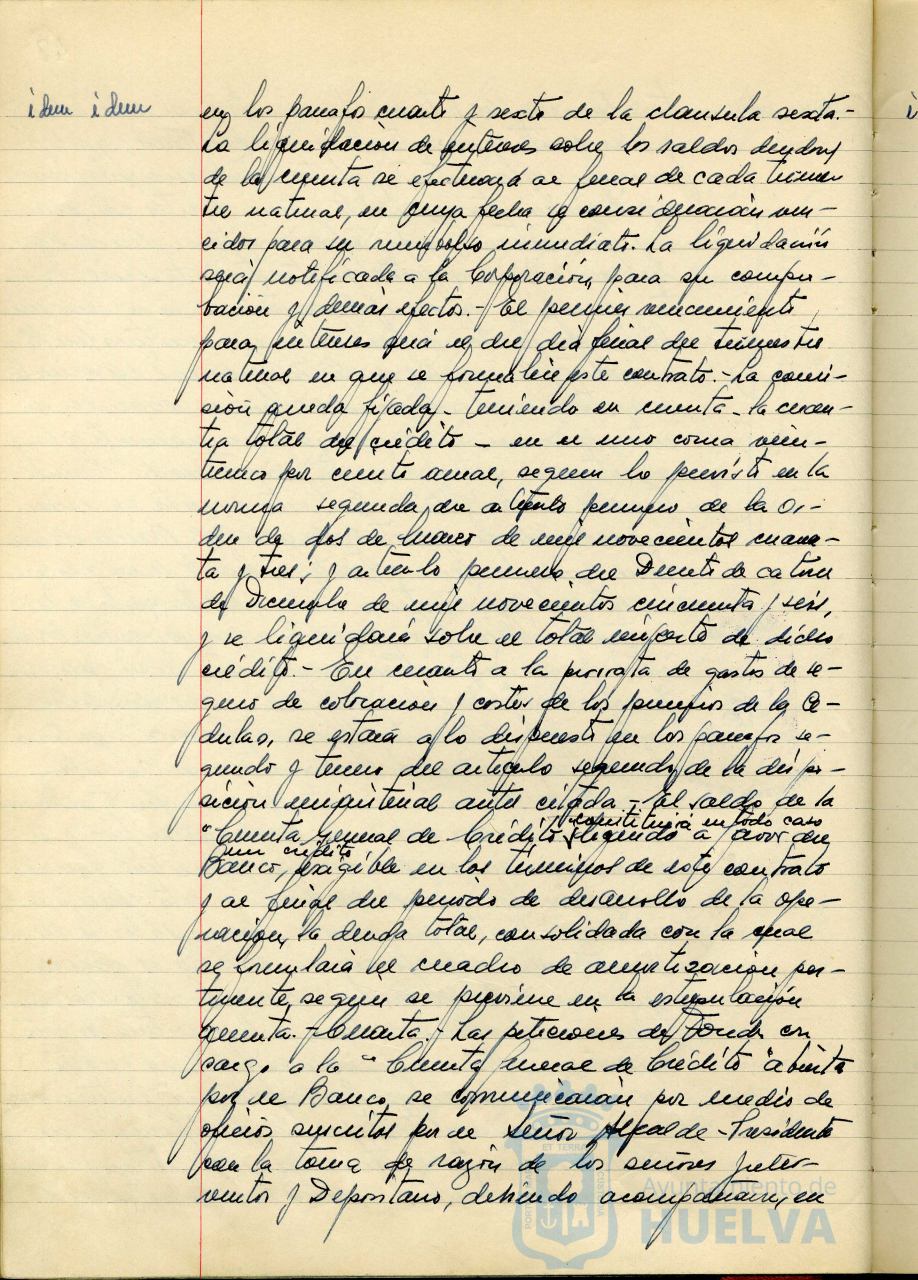 idem idem
en los parrafos cuarto y sexto de la clausula sexta.-
La liquidación de intereses sobre los saldos deudores
de la cuenta se efectuará al final de cada trimes-
tre natural, en cuya fecha se considerarán ven-
cidos para su reembolso inmediato. La liquidación
será notificada a la Corporación, para su compro-
bación y demás efectos.- El primer vencimiento
para intereses será el del día final del trimestre
natural en que se formalice este contrato.- La comi-
sión queda fijada - teniendo en cuenta - la cuan-
tía total del crédito - en el uno coma vein-
ticinco por ciento anual, segun lo previsto en la
norma segunda, del artículo primero de la Or-
den de dos de Marzo de mil novecientos cuaren-
ta y tres, y artículo primero del Decreto de catorce
de Diciembre de mil novecientos cincuenta y seis,
y se liquidará sobre el total importe de dicho
crédito.- En cuanto a la prorrata de gastos de se-
guro de cotización y costes de los premios de la Cé-
dulas, se estará a lo dispuesto en los parrafos se-
gundo y tercero del artículo segundo de la dispo-
sición ministerial antes citada.- El saldo de la
constituirá en todo caso
"Cuenta General de Crédito" líquido a favor del
un crédito
Banco, exigible en los términos de este contrato
y al final del periodo de desarrollo de la ope-
ración, la deuda total, consolidada con la cual
se formulará el cuadro de amortización per-
tinente, según se previene en la estipulación
quinta.- Cuarta.- Las peticiones de fondos con
cargo a la "Cuenta General de Crédito" abierta
por el Banco, se comunicarán por medio de
oficios suscritos por el señor Alcalde-Presidente
con la toma de razón de los señores Inter-
ventor y Depositario, debiendo acompañarse, en
Ayuntamiento de
HUELVA